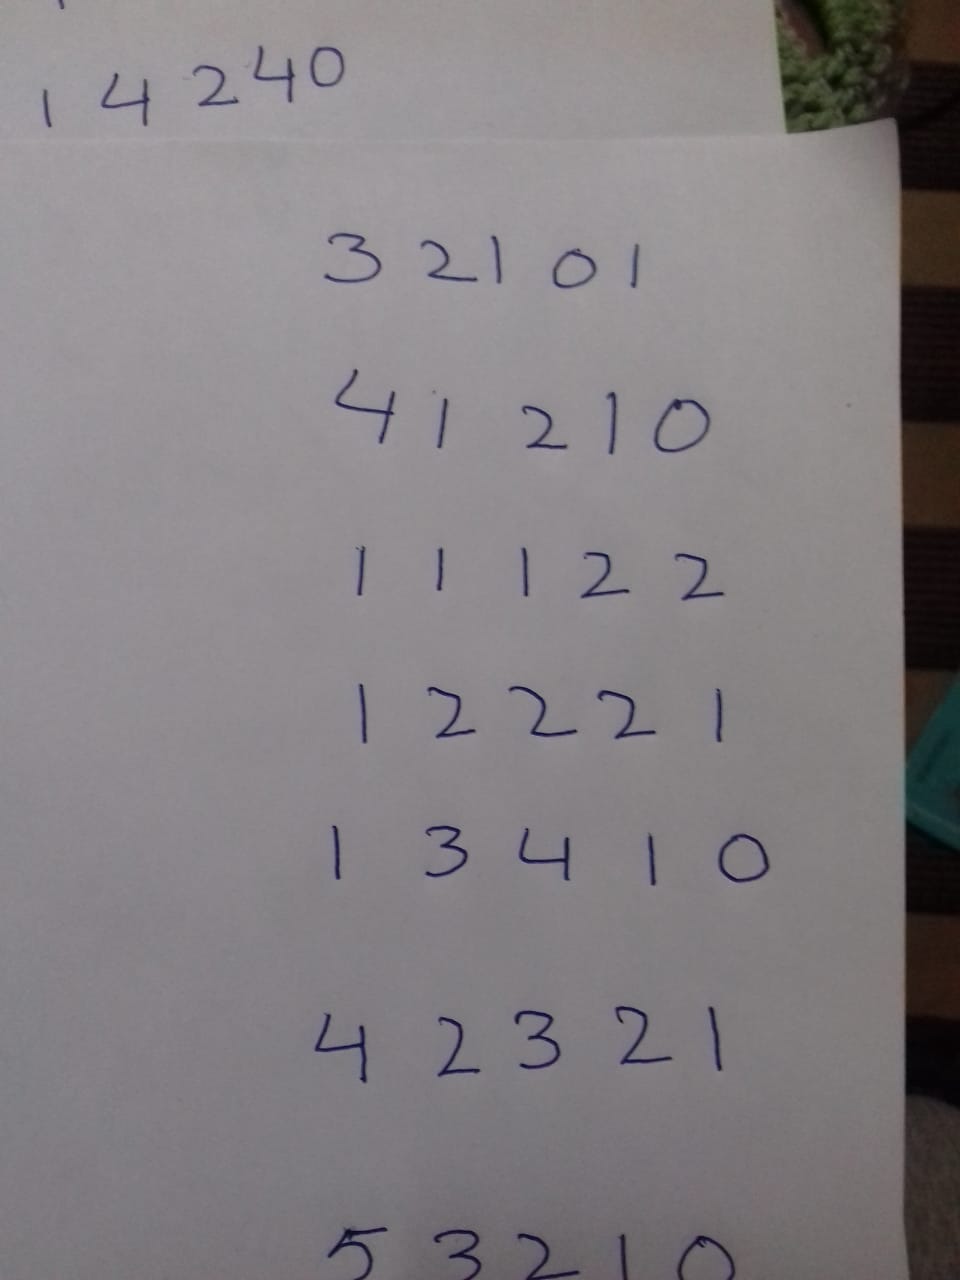 1 4 2 4 0
3 2 1 0 1
4 1 2 1 0
1 1 1 2 2
1 2 2 2 1
1 3 4 1 0
4 2 3 2 1
5 3 2 1 0